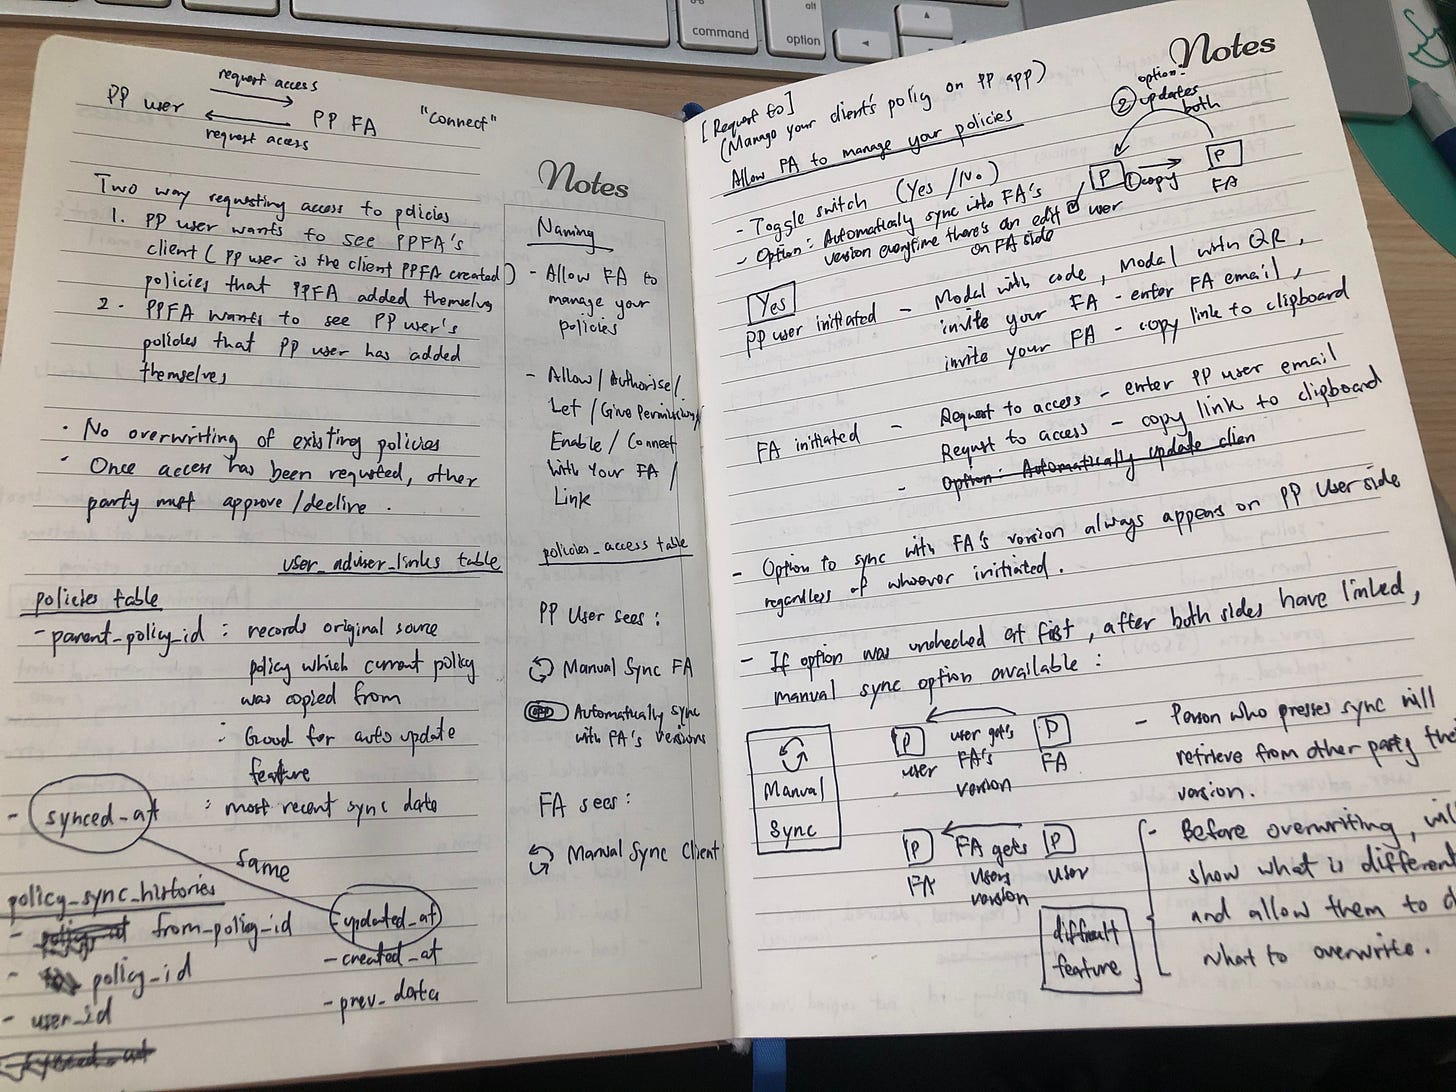 command
alt
option
request access
PP user
PP FA
"Connect"
request access
Two way requesting access to policies
1. PP user wants to see PPFA's
client (PP user is the client PPFA created)
policies that PPFA added themselves
2. PPFA wants to see PP user's
policies that PP user has added
themselves
· No overwriting of existing policies
· Once access has been requested, other
party must approve / decline.
user_adviser_links table
policies table
- parent_policy_id : records original source
policy which current policy
was copied from
: Good for auto update
feature
- synced_at : most recent sync date
same
policy_sync_histories
- from_policy_id
- policy_id
- user_id
- updated_at
- created_at
- prev_data
Notes
Naming
- Allow FA to
manage your
policies
- Allow / Authorise /
Let / Give Permissions /
Enable / Connect
with your FA /
Link
policies_access table
PP User sees :
Manual Sync FA
Automatically sync
with FA's versions
FA sees :
Manual Sync Client
Notes
[Request to]
(Manage your client's policy on PP app)
Allow FA to manage your policies
option:
2 updates
both
P
1 copy
P
user
FA
- Toggle switch (Yes / No)
- Option: Automatically sync with FA's
version everytime there's an edit
on FA side
Yes
PP user initiated - Modal with code, Modal with QR,
invite your FA - enter FA email,
invite your FA - copy link to clipboard
FA initiated - Request to access - enter PP user email
Request to access - copy link to clipboard
- Option: Automatically update clien
- Option to sync with FA's version always appears on PP User side
regardless of whoever initiated.
- If option was unchecked at first, after both sides have linked,
manual sync option available :
Manual
Sync
P
user
user gets
FA's
version
P
FA
P
FA
FA gets
users
version
P
user
- Person who presses sync will
retrieve from other party
version.
- Before overwriting,
show what is different
and allow them to
what to overwrite.
difficult
feature